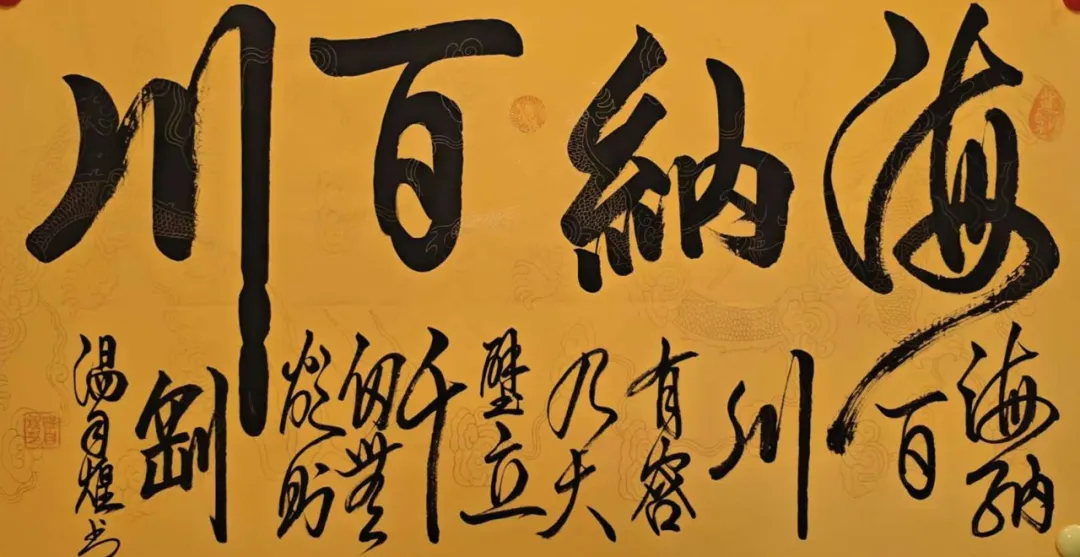 海納百川
海納
百
川
有容
乃大
壁立
千
仞無
欲則
剛
湯月煌书